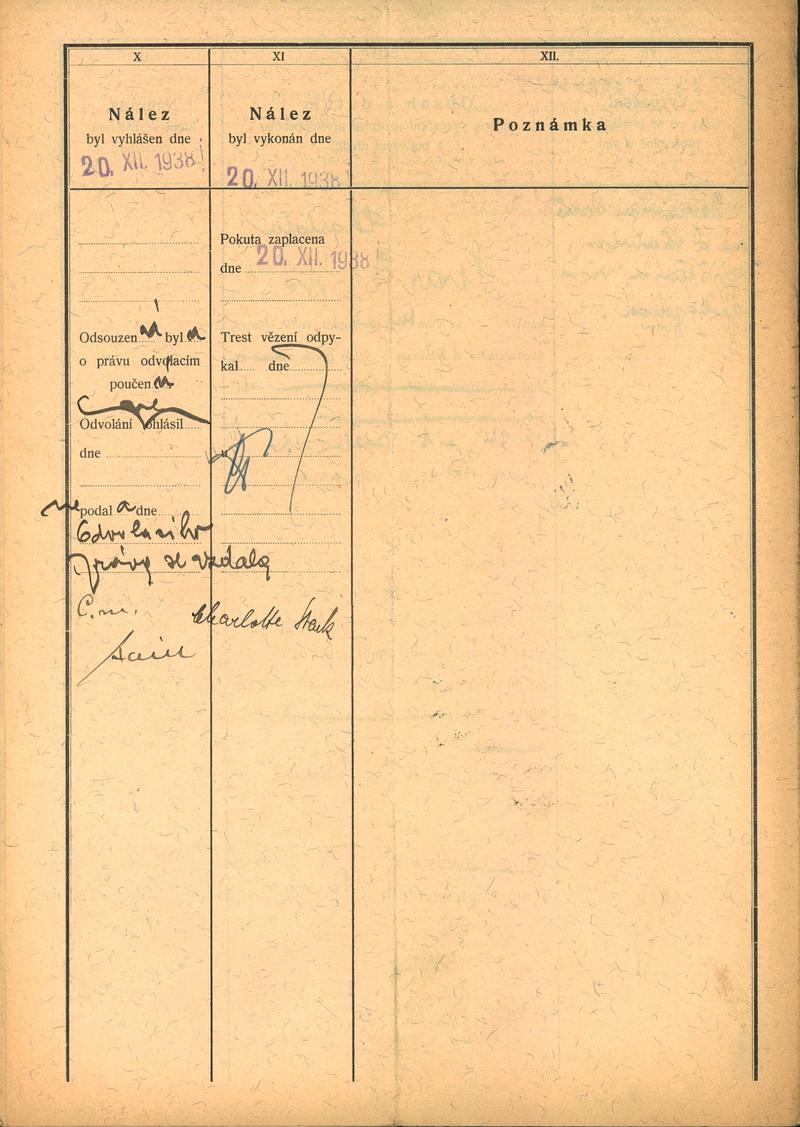 X
Nález
byl vyhlášen dne
20. XII. 1938
Odsouzen á byl a
o právu odvolacím
poučen a
Odvolání ohlásil
dne
ne podal a dne
Odvolacího
práva se vzdala
C.m.
Charlotte Stark
XI
Nález
byl vykonán dne
20. XII. 1938
Pokuta zaplacena
dne 20. XII. 1938
Trest vězení odpy-
kal dne
u
XII.
Poznámka